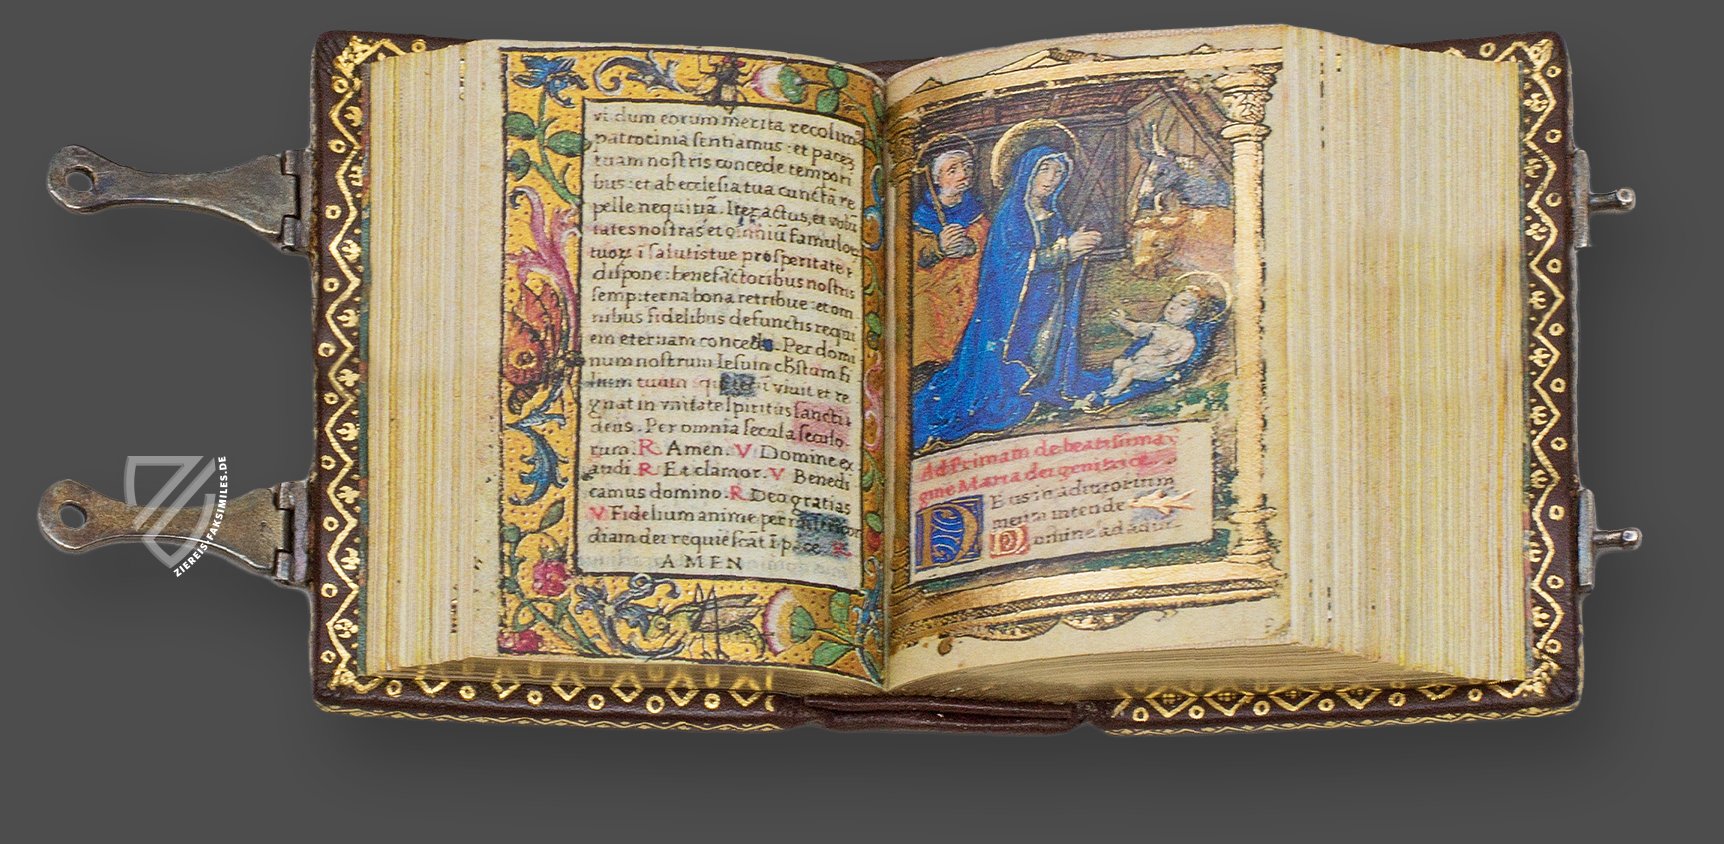 vi dum eorum merita recolimꝰ
patrocinia ſentiamus : et pacẽ
tuam noſtris concede tempori
bus : et ab eccleſia tua cunctā re
pelle nequitiā . Iter actus, et volū
tates noſtras et oīniū famulor
tuoꝝ ī ſalutis tue proſperitate
diſpone : benefactoribus noſtris
ſempiterna bona retribue : et om
nibus fidelibus defunctis requi
em eternam concede . Per domi
num noſtrum Ieſum chꝛiſtum fi
lium tuum qui tecū viuit et re
gnat in vnitate ſpiritus ſancti
deus . Per omnia ſecula ſeculo
rum . R Amen . V Domine ex
audi . R Et clamor . V Benedi
camus domino . R Deo gratias
V Fidelium anime per miſericor
diam dei requieſcāt ī pace . R
AMEN
Ad Primam de beatiſſima v
gine Maria dei genitrice
DEus in adiutorium
meum intende
Domine ad adiu
ZIEREIS-FAKSIMILES.DE